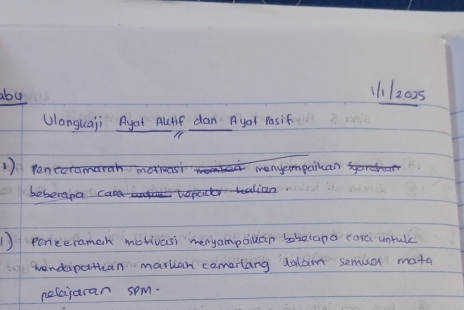 abu
1/1/2025
Ulangkaji Ayat Aktif dan Ayat Pasif
1) Penceramah motivasi menyampaikan
beberapa cara kepada kalian
1) Penceramah motivasi menyampaikan beberapa cara untuk
mendapatkan markah cemerlang dalam semua mata
pelajaran SPM.